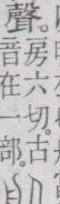 聲。
房六切。古
音在一部。